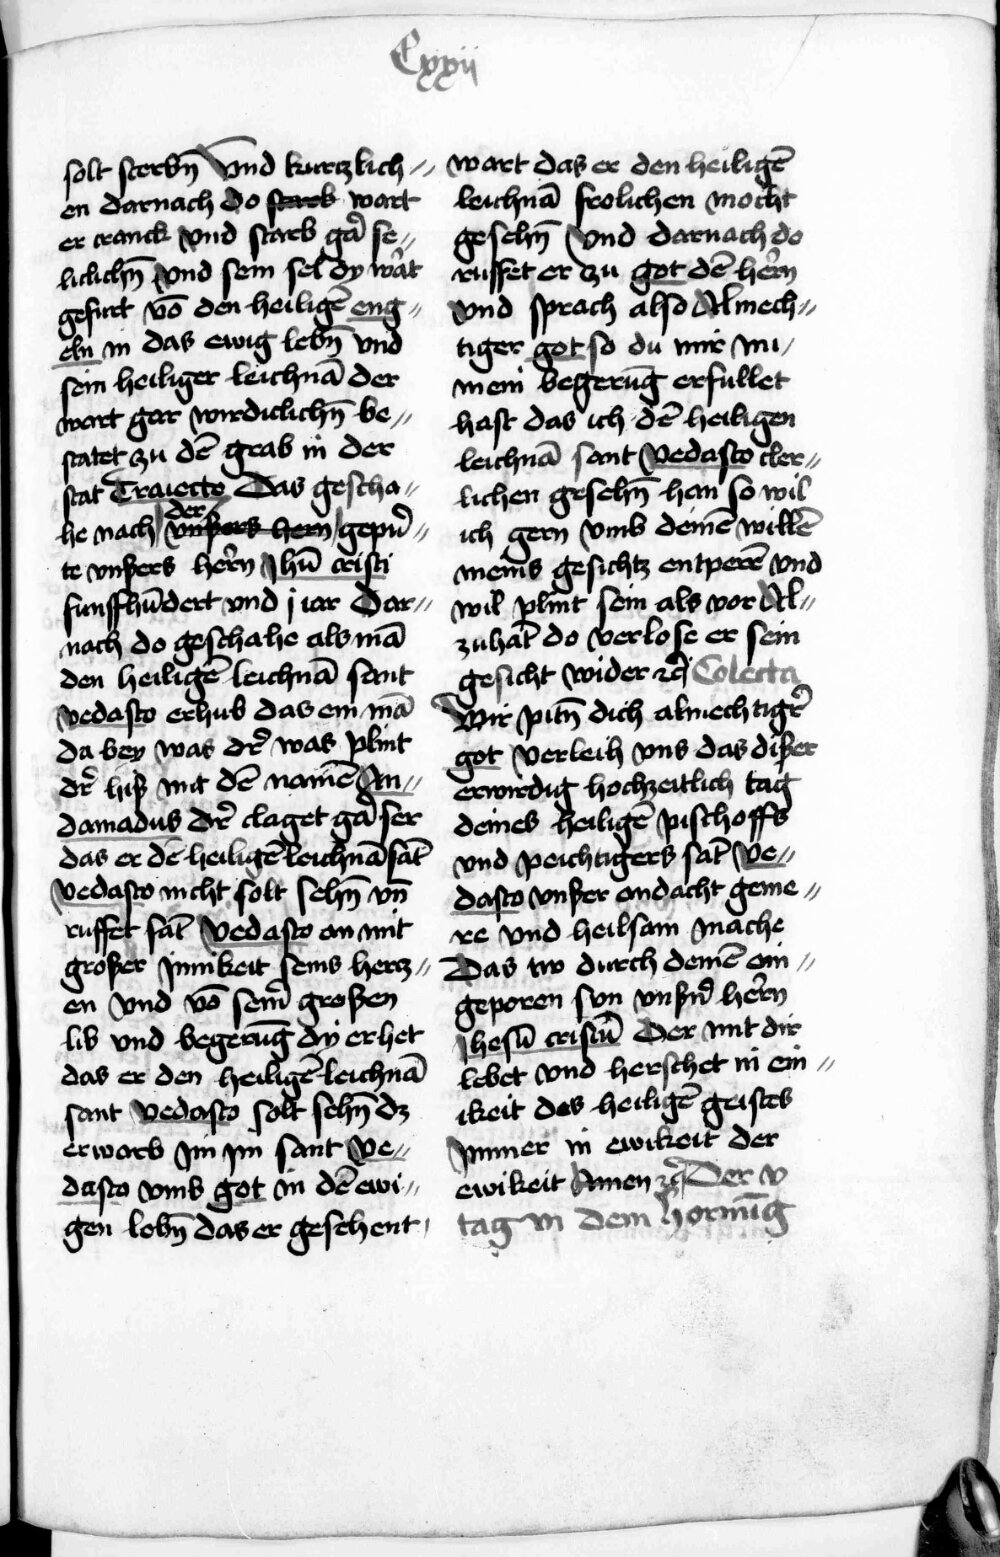 Cxxij
solt sterbn̄ Vnd kurtzlich〃
en darnach do starb wart
er cranck Vnd starb gar̄ se〃
liclichn̄ Vnd sein sel dy war̄t
gefurt vō den heiligē eng〃
eln in das ewig lebn̄ vnd
sein heiliger leichnā der
wart gar wirdiclichn̄ be〃
statet zu dē grab in der
stat Traiecto Das gescha〃
he nach der vnsers hern gepur̄〃
te vnsers her̄n Jhū cristi
funffhūdert vnd j iar Dar〃
nach do geschahe als mā
den heiligē leichnā sant
Vedasto erhub das ein mā
da bey was dr̄ was plint
dr̄ hiß mit dē namē An〃
damadus dr̄ claget gar̄ ser
das er dē heiligē leichnā sāt
Vedasto nicht solt sehn̄ vn̄
ruffet sāt Vedasto an mit
großer Jnnikeit seins hertz〃
en Vnd vō seinr̄ großen
lib vnd begerūg dy er het
das er den heiligē leichnā
sant Vedasto solt sehn̄ dz
erwarb Jm Jm sant Ve〃
dasto vmb got in dē ewi〃
gen lebn̄ das er gesehent
wart das er den heiligē
leichnā frolichen mocht
gesehn̄ Vnd darnach do
ruffet er zu got dē her̄n
Vnd sprach also Almech〃
tiger got so du mir nu
mein begerūg erfullet
hast das ich dē heiligen
leichnā sant Vedasto cler〃
lichen gesehn̄ han so wil
ich gern vmb deinē willē
meins gesichtz entperē Vnd
wil plint sein als vor Al〃
zuhāt do verlose er sein
gesicht wider ⁊c̄ Colecta
Wir pitn̄ dich almechtigr̄
got verleih vns das dißer
erwirdig hochzeitlich tag
deines heiligē pischoffs
vnd peichtigers sāt Ve〃
dasto vnßer andacht geme〃
re vnd heilsam mache
Das tw durch deinē ein〃
geporen sun vnßnr̄ her̄n
Jhesū cristū Der mit dir
lebet Vnd herschet in ein〃
ikeit des heiligē geistes
Jmmer in ewikeit der
ewikeit Amen ⁊c̄ Der v
tag in dem hornūg